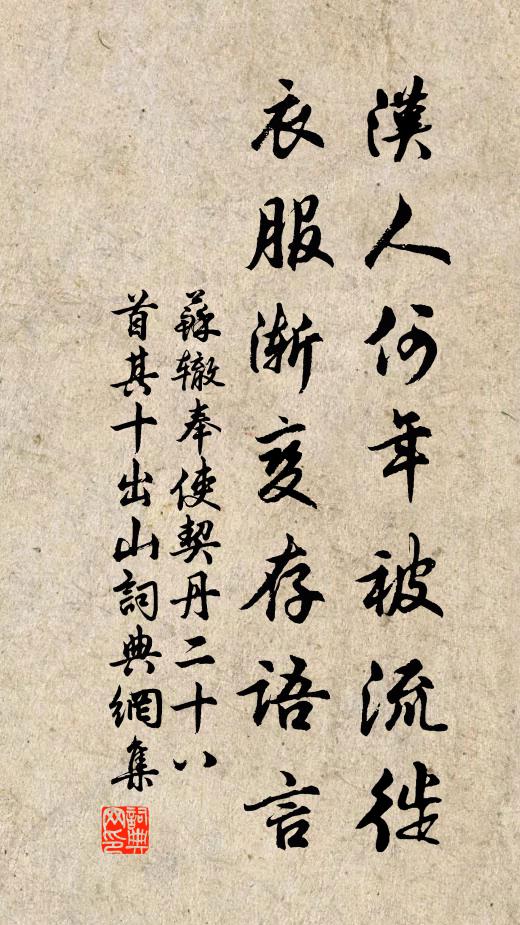 漢人何年被流徙
衣服漸变存語言
蘇辙奉使契丹二十八
首其十出山詞典網集
詞典
网印